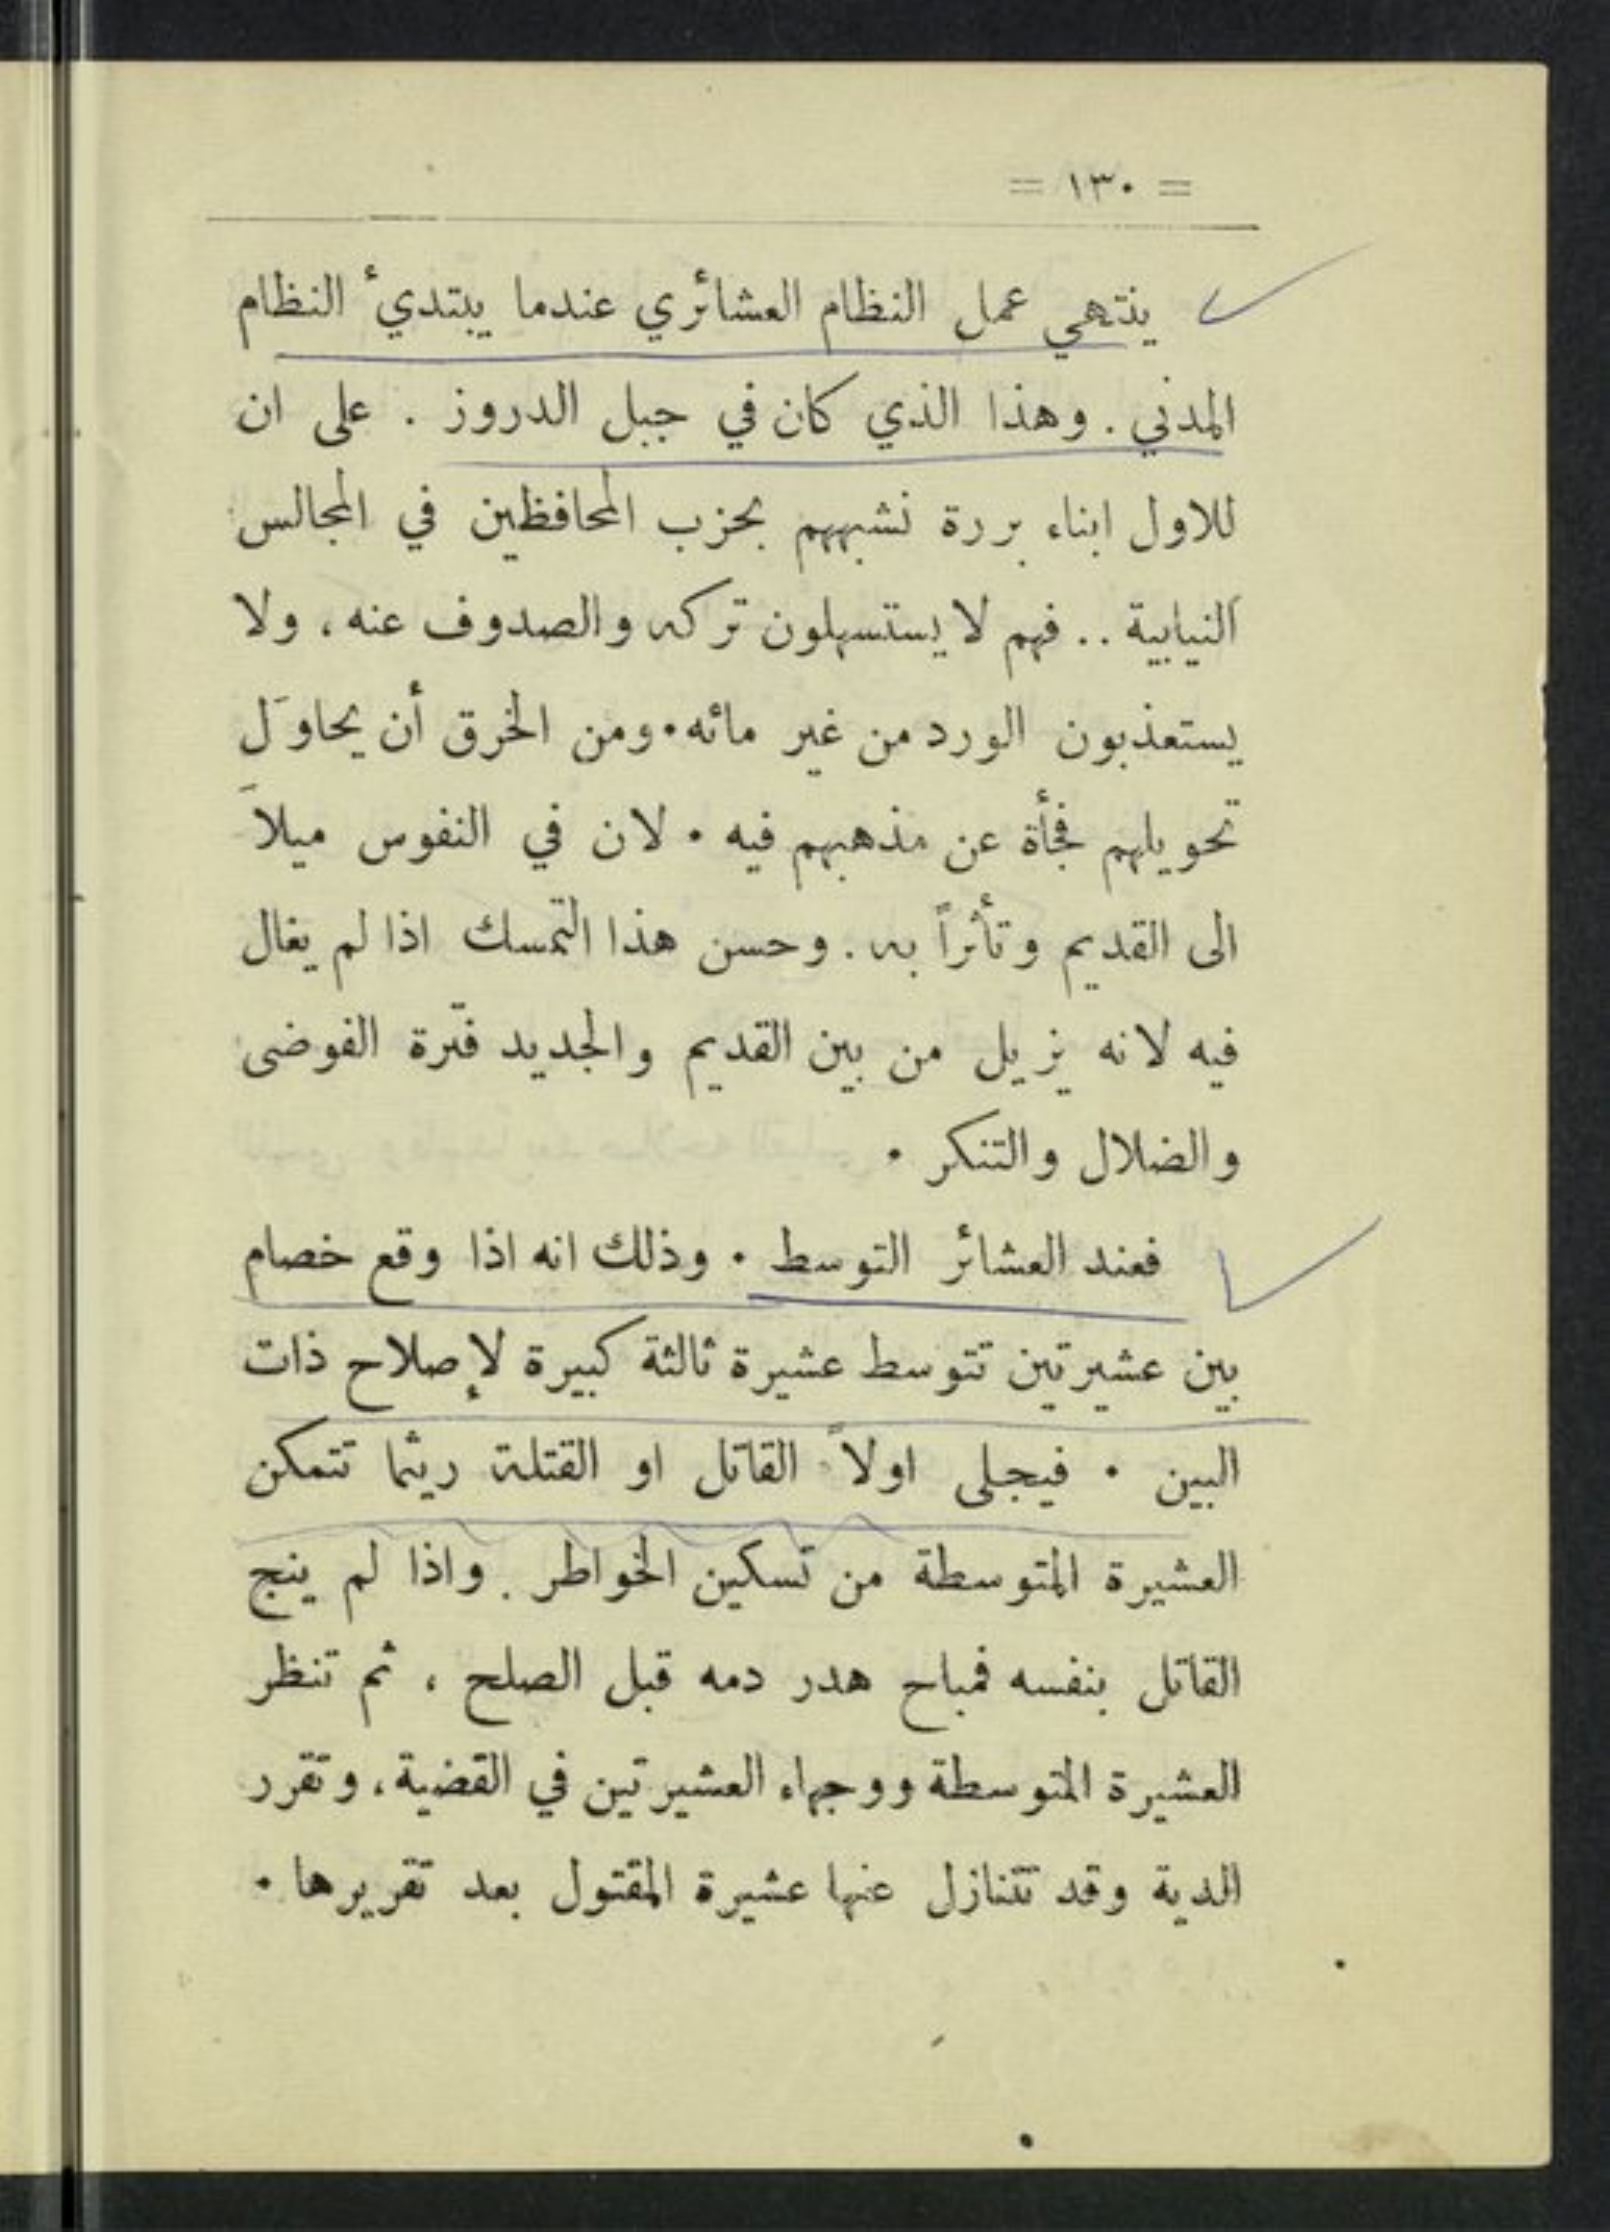 = ١٣٠ =
ينتهي عمل النظام العشائري عندما يبتديء النظام
المدني . وهذا الذي كان في جبل الدروز . على ان
للاول ابناء بررة نشبههم بحزب المحافظين في المجالس
النيابية .. فهم لا يستسهلون تركه والصدوف عنه ، ولا
يستعذبون الورد من غير مائه . ومن الخرق أن يحاوَل
تحويلهم فجأة عن مذهبهم فيه . لان في النفوس ميلاً
الى القديم وتأثراً به . وحسن هذا التمسك اذا لم يغال
فيه لانه يزيل من بين القديم والجديد فترة الفوضى
والضلال والتنكر .
فعند العشائر التوسط . وذلك انه اذا وقع خصام
بين عشيرتين تتوسط عشيرة ثالثة كبيرة لإصلاح ذات
البين . فيجلى اولاً القاتل او القتلة ريثما تتمكن
العشيرة المتوسطة من تسكين الخواطر . واذا لم ينج
القاتل بنفسه فمباح هدر دمه قبل الصلح ، ثم تنظر
العشيرة المتوسطة ووجهاء العشيرتين في القضية ، وتقرر
الدية وقد تتنازل عنها عشيرة المقتول بعد تقريرها .